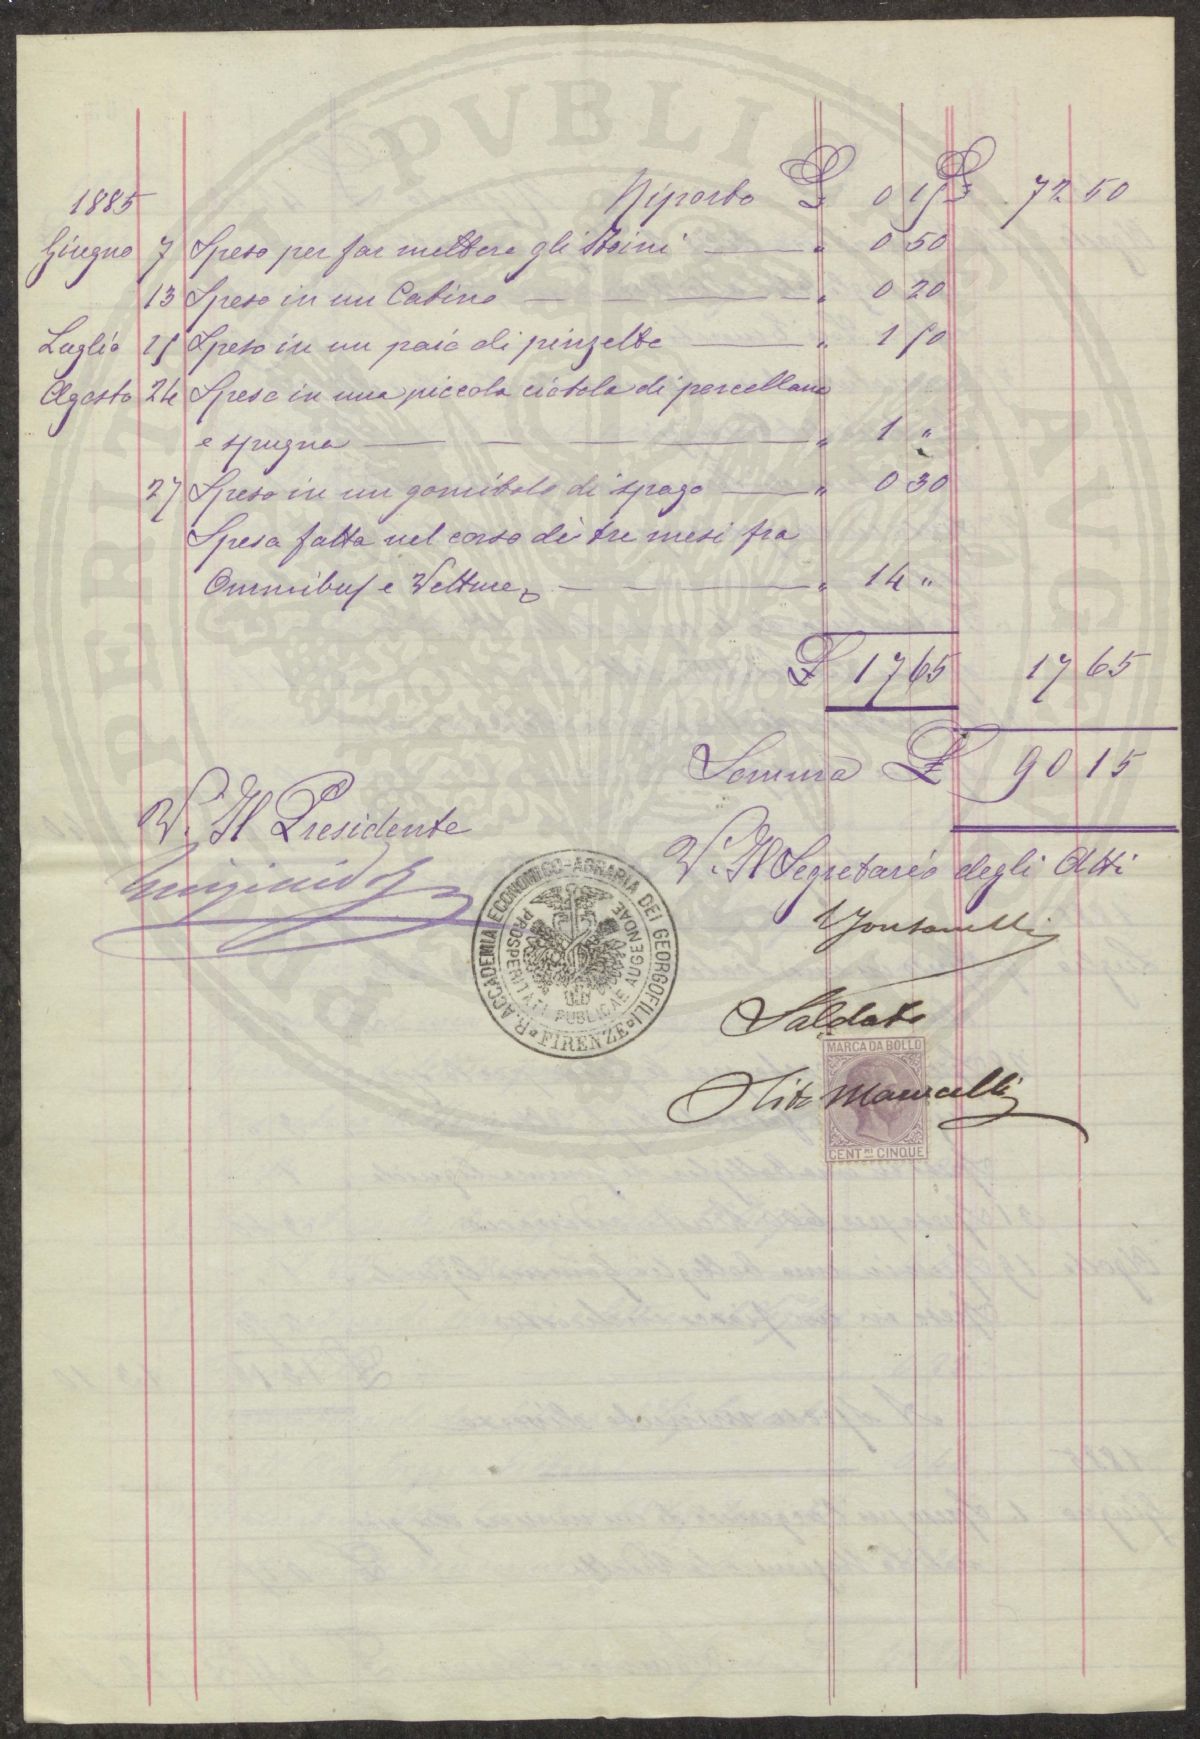 1885 Riporto £ 0 15 £ 72 50
Giugno 7 Speso per far mettere gli Stoini — " 0 50
13 Speso in un Catino — " 0 20
Luglio 15 Speso in un paio di pinzette — " 1 50
Agosto 24 Speso in una piccola ciotola di porcellana
e spugna — " 1 "
27 Speso in un gomitolo di spago — " 0 30
Spesa fatta nel corso di tre mesi fra
Omnibus e Vetture — " 14 "
£ 17 65 17 65
Somma £ 90 15
V. Il Presidente
V. Il Segretario degli Atti
R. ACCADEMIA ECONOMICO-AGRARIA DEI GEORGOFILI
FIRENZE
PROSPERITATI PUBLICAE AUGENDAE
Saldato
MARCA DA BOLLO
CENT.MI CINQUE